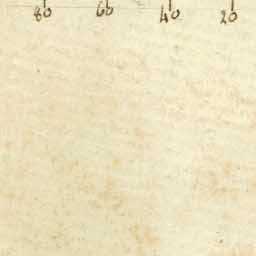 80 60 40 20